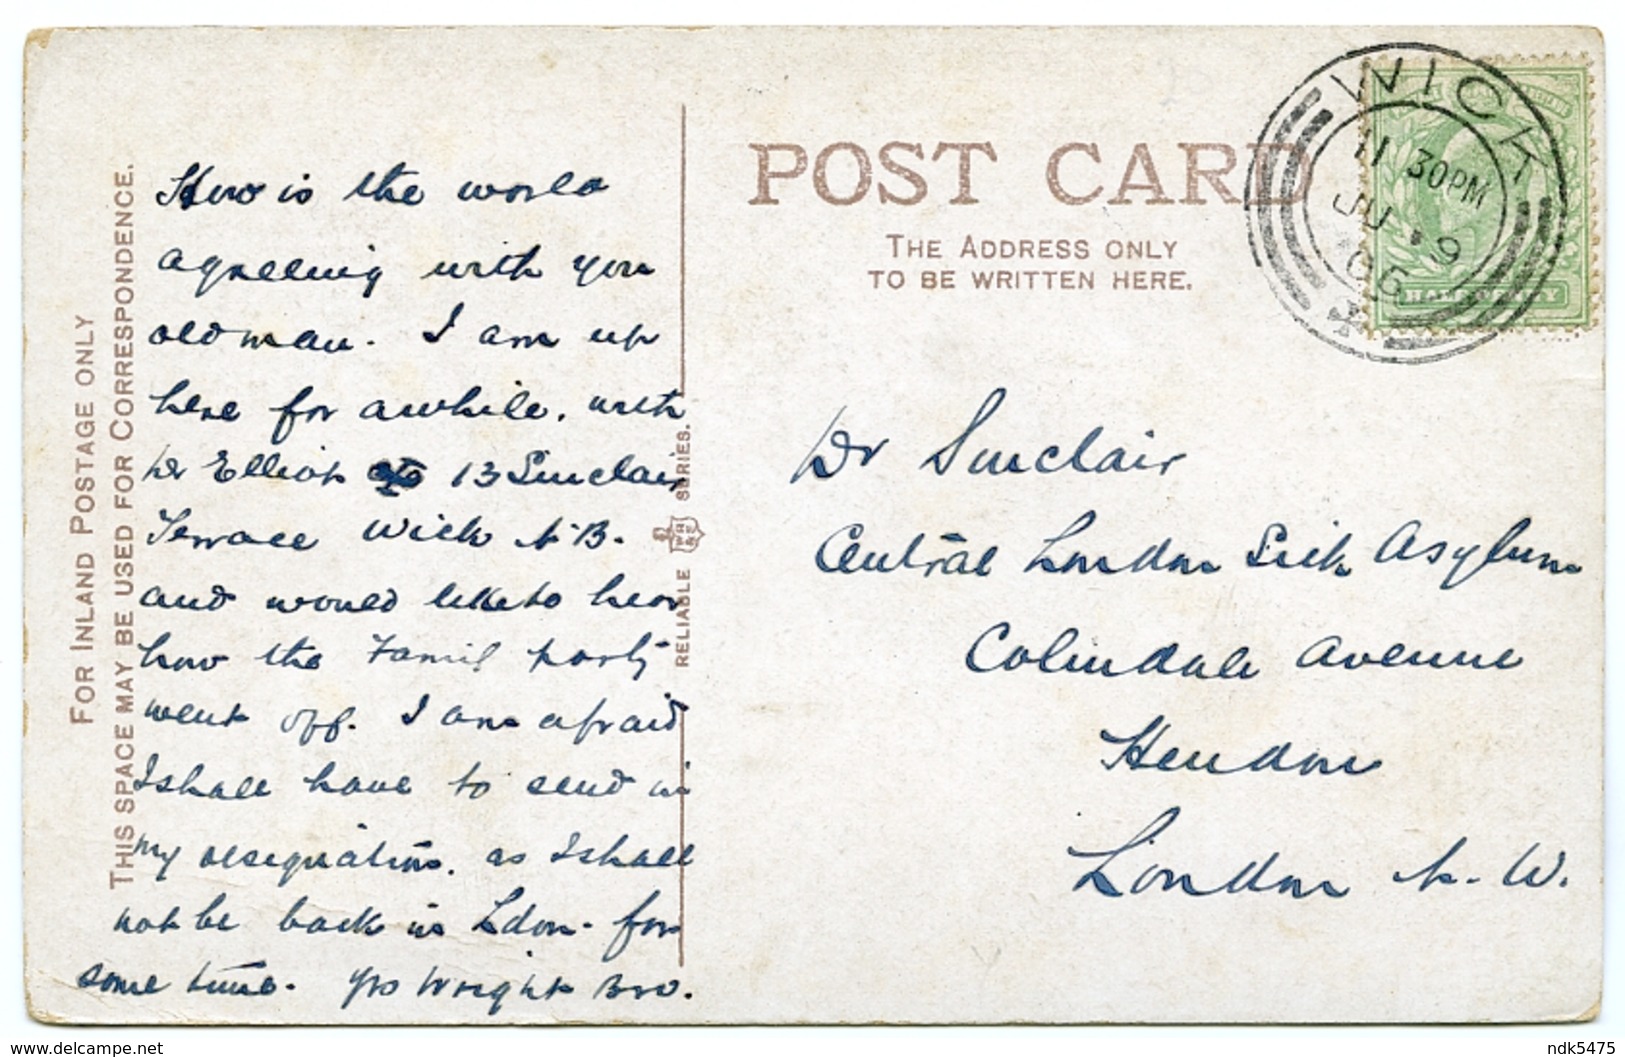 FOR INLAND POSTAGE ONLY
THIS SPACE MAY BE USED FOR CORRESPONDENCE.
How is the world
agreeing with you
old man. I am up
here for awhile. with
Dr Elliot 13 Sinclair
Terrace Wick N.B.
and would like to hear
how the Tamil party
went off. I am afraid
I shall have to send in
my resignation. as I shall
not be back in Ldon. for
some time. Yrs Wright Bro.
RELIABLE SERIES.
POST CARD
THE ADDRESS ONLY
TO BE WRITTEN HERE.
WICK
11 30PM
JU 9
06
HALFPENNY
Dr Sinclair
Central London Sick Asylum
Colindale Avenue
Hendon
London N. W.
www.delcampe.net
ndk5475